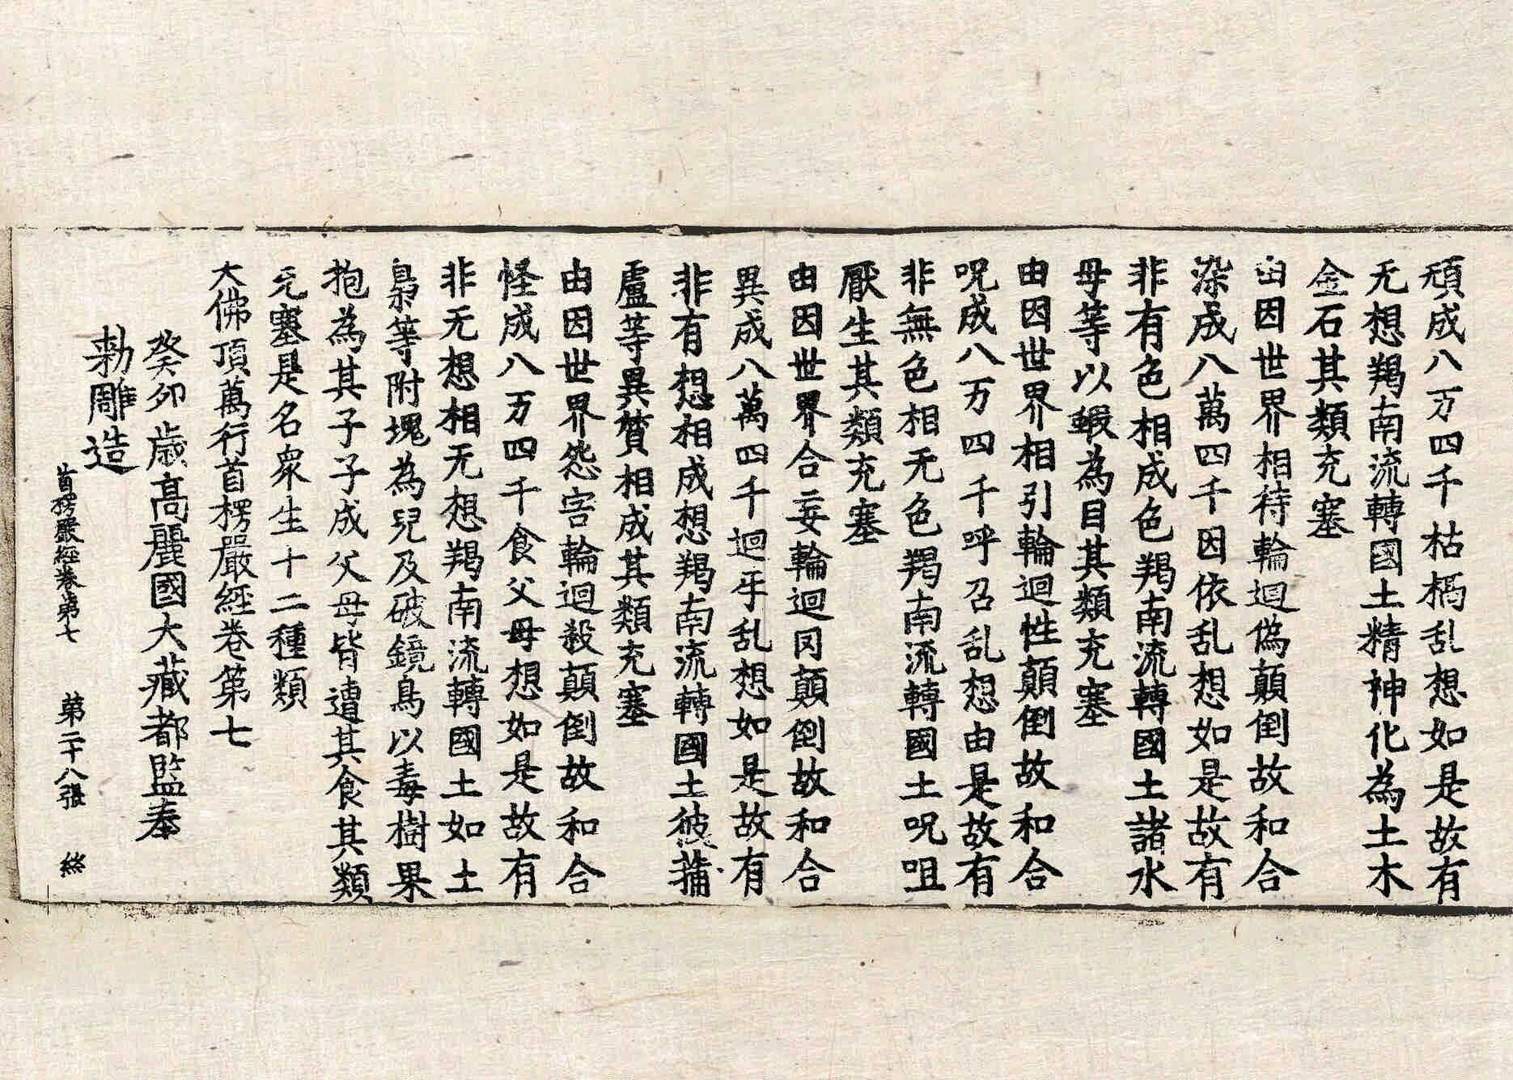 頑成八万四千枯槁乱想如是故有
无想羯南流轉國土精神化為土木
金石其類充塞
由因世界相待輪迴偽顛倒故和合
染成八萬四千因依乱想如是故有
非有色相成色羯南流轉國土諸水
母等以蝦為目其類充塞
由因世界相引輪迴性顛倒故和合
呪成八万四千呼召乱想由是故有
非無色相无色羯南流轉國土呪咀
厭生其類充塞
由因世界合妄輪迴罔顛倒故和合
異成八萬四千迴乎乱想如是故有
非有想相成想羯南流轉國土彼蒲
盧等異質相成其類充塞
由因世界怨害輪迴殺顛倒故和合
怪成八万四千食父母想如是故有
非无想相无想羯南流轉國土如土
梟等附塊為兒及破鏡鳥以毒樹果
抱為其子子成父母皆遭其食其類
充塞是名衆生十二種類
大佛頂萬行首楞嚴經卷第七
癸卯歲高麗國大藏都監奉
勅雕造
首楞嚴經卷第七 第二十八張 終